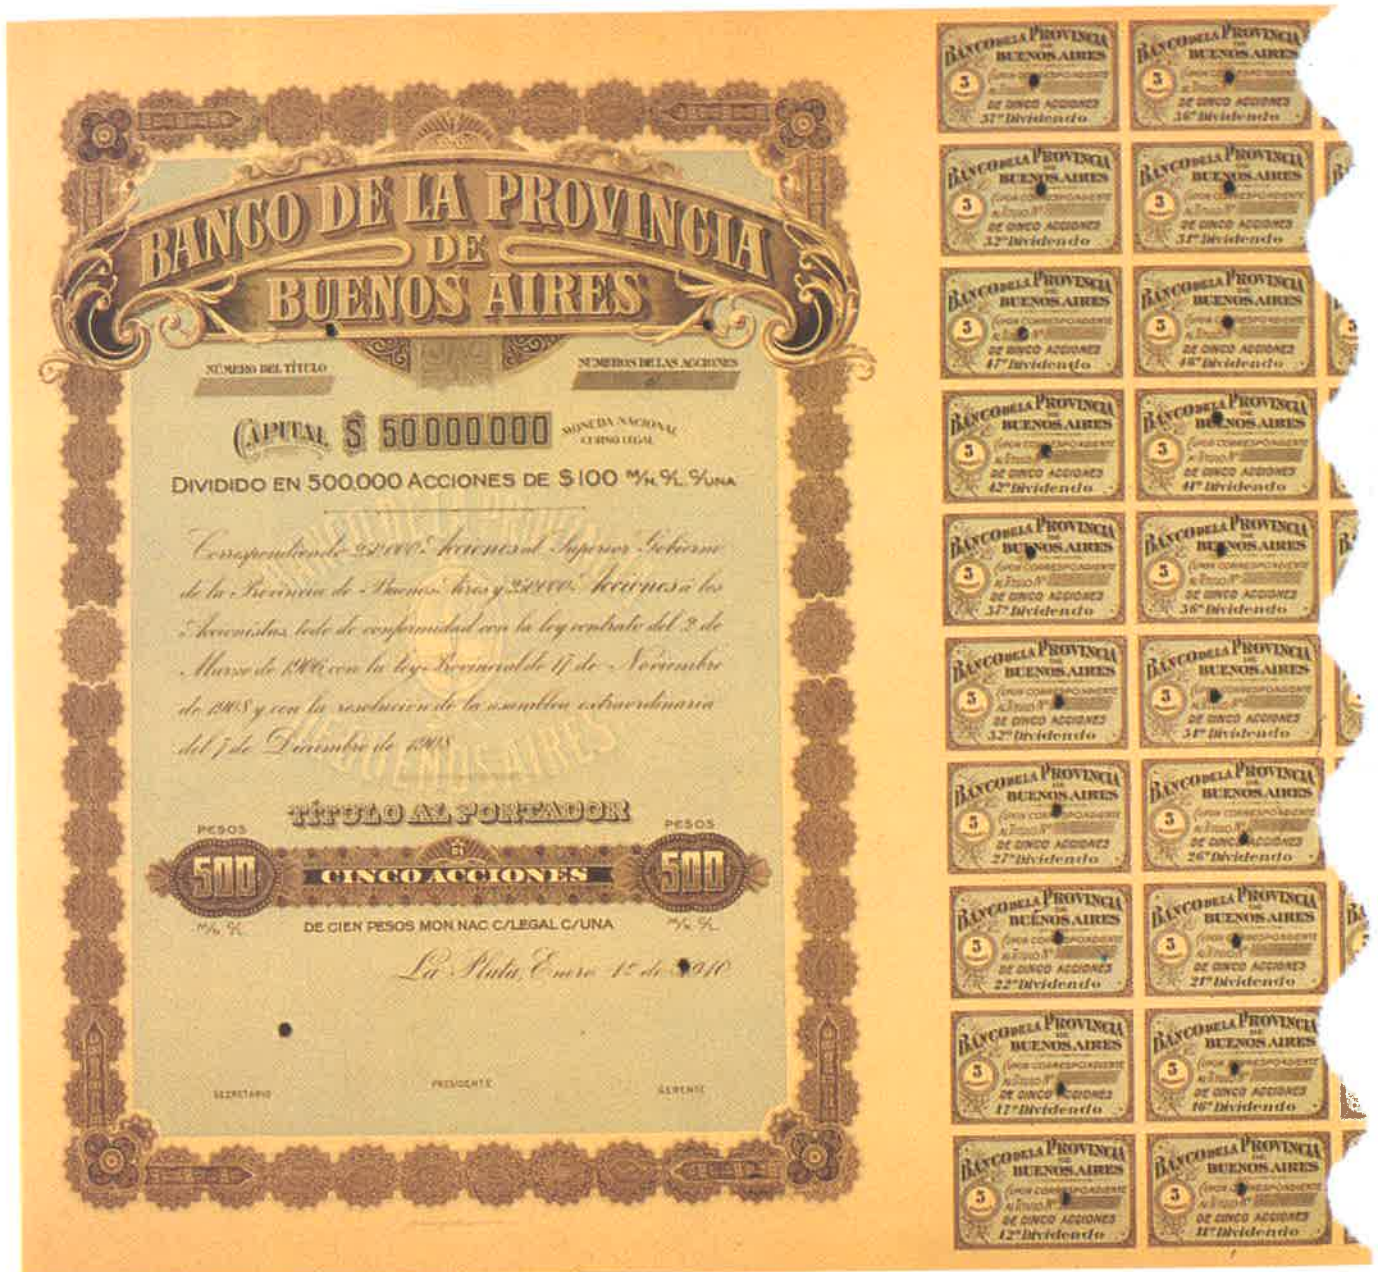 BANCO DE LA PROVINCIA
DE
BUENOS AIRES
NÚMERO DEL TÍTULO
NÚMEROS DE LAS ACCIONES
CAPITAL $ 50000000 MONEDA NACIONAL
CURSO LEGAL
DIVIDIDO EN 500,000 ACCIONES DE $100 M/N. C/L. C/UNA
Correspondiendo 250.000 Acciones al Superior Gobierno
de la Provincia de Buenos Aires y 250.000 Acciones á los
Accionistas, todo de conformidad con la ley contrato del 2 de
Marzo de 1906 con la ley Provincial de 17 de Noviembre
de 1908 y con la resolución de la asamblea extraordinaria
del 7 de Diciembre de 1908
BANCO DE LA PROVINCIA
DE BUENOS AIRES
TÍTULO AL PORTADOR
PESOS
PESOS
500
DE
CINCO ACCIONES
500
M/N. C/L.
DE CIEN PESOS MON NAC C/LEGAL C/UNA
M/N. C/L.
La Plata, Enero 1º de 1910
SECRETARIO
PRESIDENTE
GERENTE
BANCO DE LA PROVINCIA
DE
BUENOS AIRES
5
CUPON CORRESPONDIENTE
AL TITULO Nº
DE CINCO ACCIONES
57º Dividendo
BANCO DE LA PROVINCIA
DE
BUENOS AIRES
5
CUPON CORRESPONDIENTE
AL TITULO Nº
DE CINCO ACCIONES
56º Dividendo
BANCO DE LA PROVINCIA
DE
BUENOS AIRES
5
CUPON CORRESPONDIENTE
AL TITULO Nº
DE CINCO ACCIONES
52º Dividendo
BANCO DE LA PROVINCIA
DE
BUENOS AIRES
5
CUPON CORRESPONDIENTE
AL TITULO Nº
DE CINCO ACCIONES
51º Dividendo
BANCO DE LA PROVINCIA
DE
BUENOS AIRES
5
CUPON CORRESPONDIENTE
AL TITULO Nº
DE CINCO ACCIONES
47º Dividendo
BANCO DE LA PROVINCIA
DE
BUENOS AIRES
5
CUPON CORRESPONDIENTE
AL TITULO Nº
DE CINCO ACCIONES
46º Dividendo
BANCO DE LA PROVINCIA
DE
BUENOS AIRES
5
CUPON CORRESPONDIENTE
AL TITULO Nº
DE CINCO ACCIONES
42º Dividendo
BANCO DE LA PROVINCIA
DE
BUENOS AIRES
5
CUPON CORRESPONDIENTE
AL TITULO Nº
DE CINCO ACCIONES
41º Dividendo
BANCO DE LA PROVINCIA
DE
BUENOS AIRES
5
CUPON CORRESPONDIENTE
AL TITULO Nº
DE CINCO ACCIONES
37º Dividendo
BANCO DE LA PROVINCIA
DE
BUENOS AIRES
5
CUPON CORRESPONDIENTE
AL TITULO Nº
DE CINCO ACCIONES
36º Dividendo
BANCO DE LA PROVINCIA
DE
BUENOS AIRES
5
CUPON CORRESPONDIENTE
AL TITULO Nº
DE CINCO ACCIONES
32º Dividendo
BANCO DE LA PROVINCIA
DE
BUENOS AIRES
5
CUPON CORRESPONDIENTE
AL TITULO Nº
DE CINCO ACCIONES
31º Dividendo
BANCO DE LA PROVINCIA
DE
BUENOS AIRES
5
CUPON CORRESPONDIENTE
AL TITULO Nº
DE CINCO ACCIONES
27º Dividendo
BANCO DE LA PROVINCIA
DE
BUENOS AIRES
5
CUPON CORRESPONDIENTE
AL TITULO Nº
DE CINCO ACCIONES
26º Dividendo
BANCO DE LA PROVINCIA
DE
BUENOS AIRES
5
CUPON CORRESPONDIENTE
AL TITULO Nº
DE CINCO ACCIONES
22º Dividendo
BANCO DE LA PROVINCIA
DE
BUENOS AIRES
5
CUPON CORRESPONDIENTE
AL TITULO Nº
DE CINCO ACCIONES
21º Dividendo
BANCO DE LA PROVINCIA
DE
BUENOS AIRES
5
CUPON CORRESPONDIENTE
AL TITULO Nº
DE CINCO ACCIONES
17º Dividendo
BANCO DE LA PROVINCIA
DE
BUENOS AIRES
5
CUPON CORRESPONDIENTE
AL TITULO Nº
DE CINCO ACCIONES
16º Dividendo
BANCO DE LA PROVINCIA
DE
BUENOS AIRES
5
CUPON CORRESPONDIENTE
AL TITULO Nº
DE CINCO ACCIONES
12º Dividendo
BANCO DE LA PROVINCIA
DE
BUENOS AIRES
5
CUPON CORRESPONDIENTE
AL TITULO Nº
DE CINCO ACCIONES
11º Dividendo